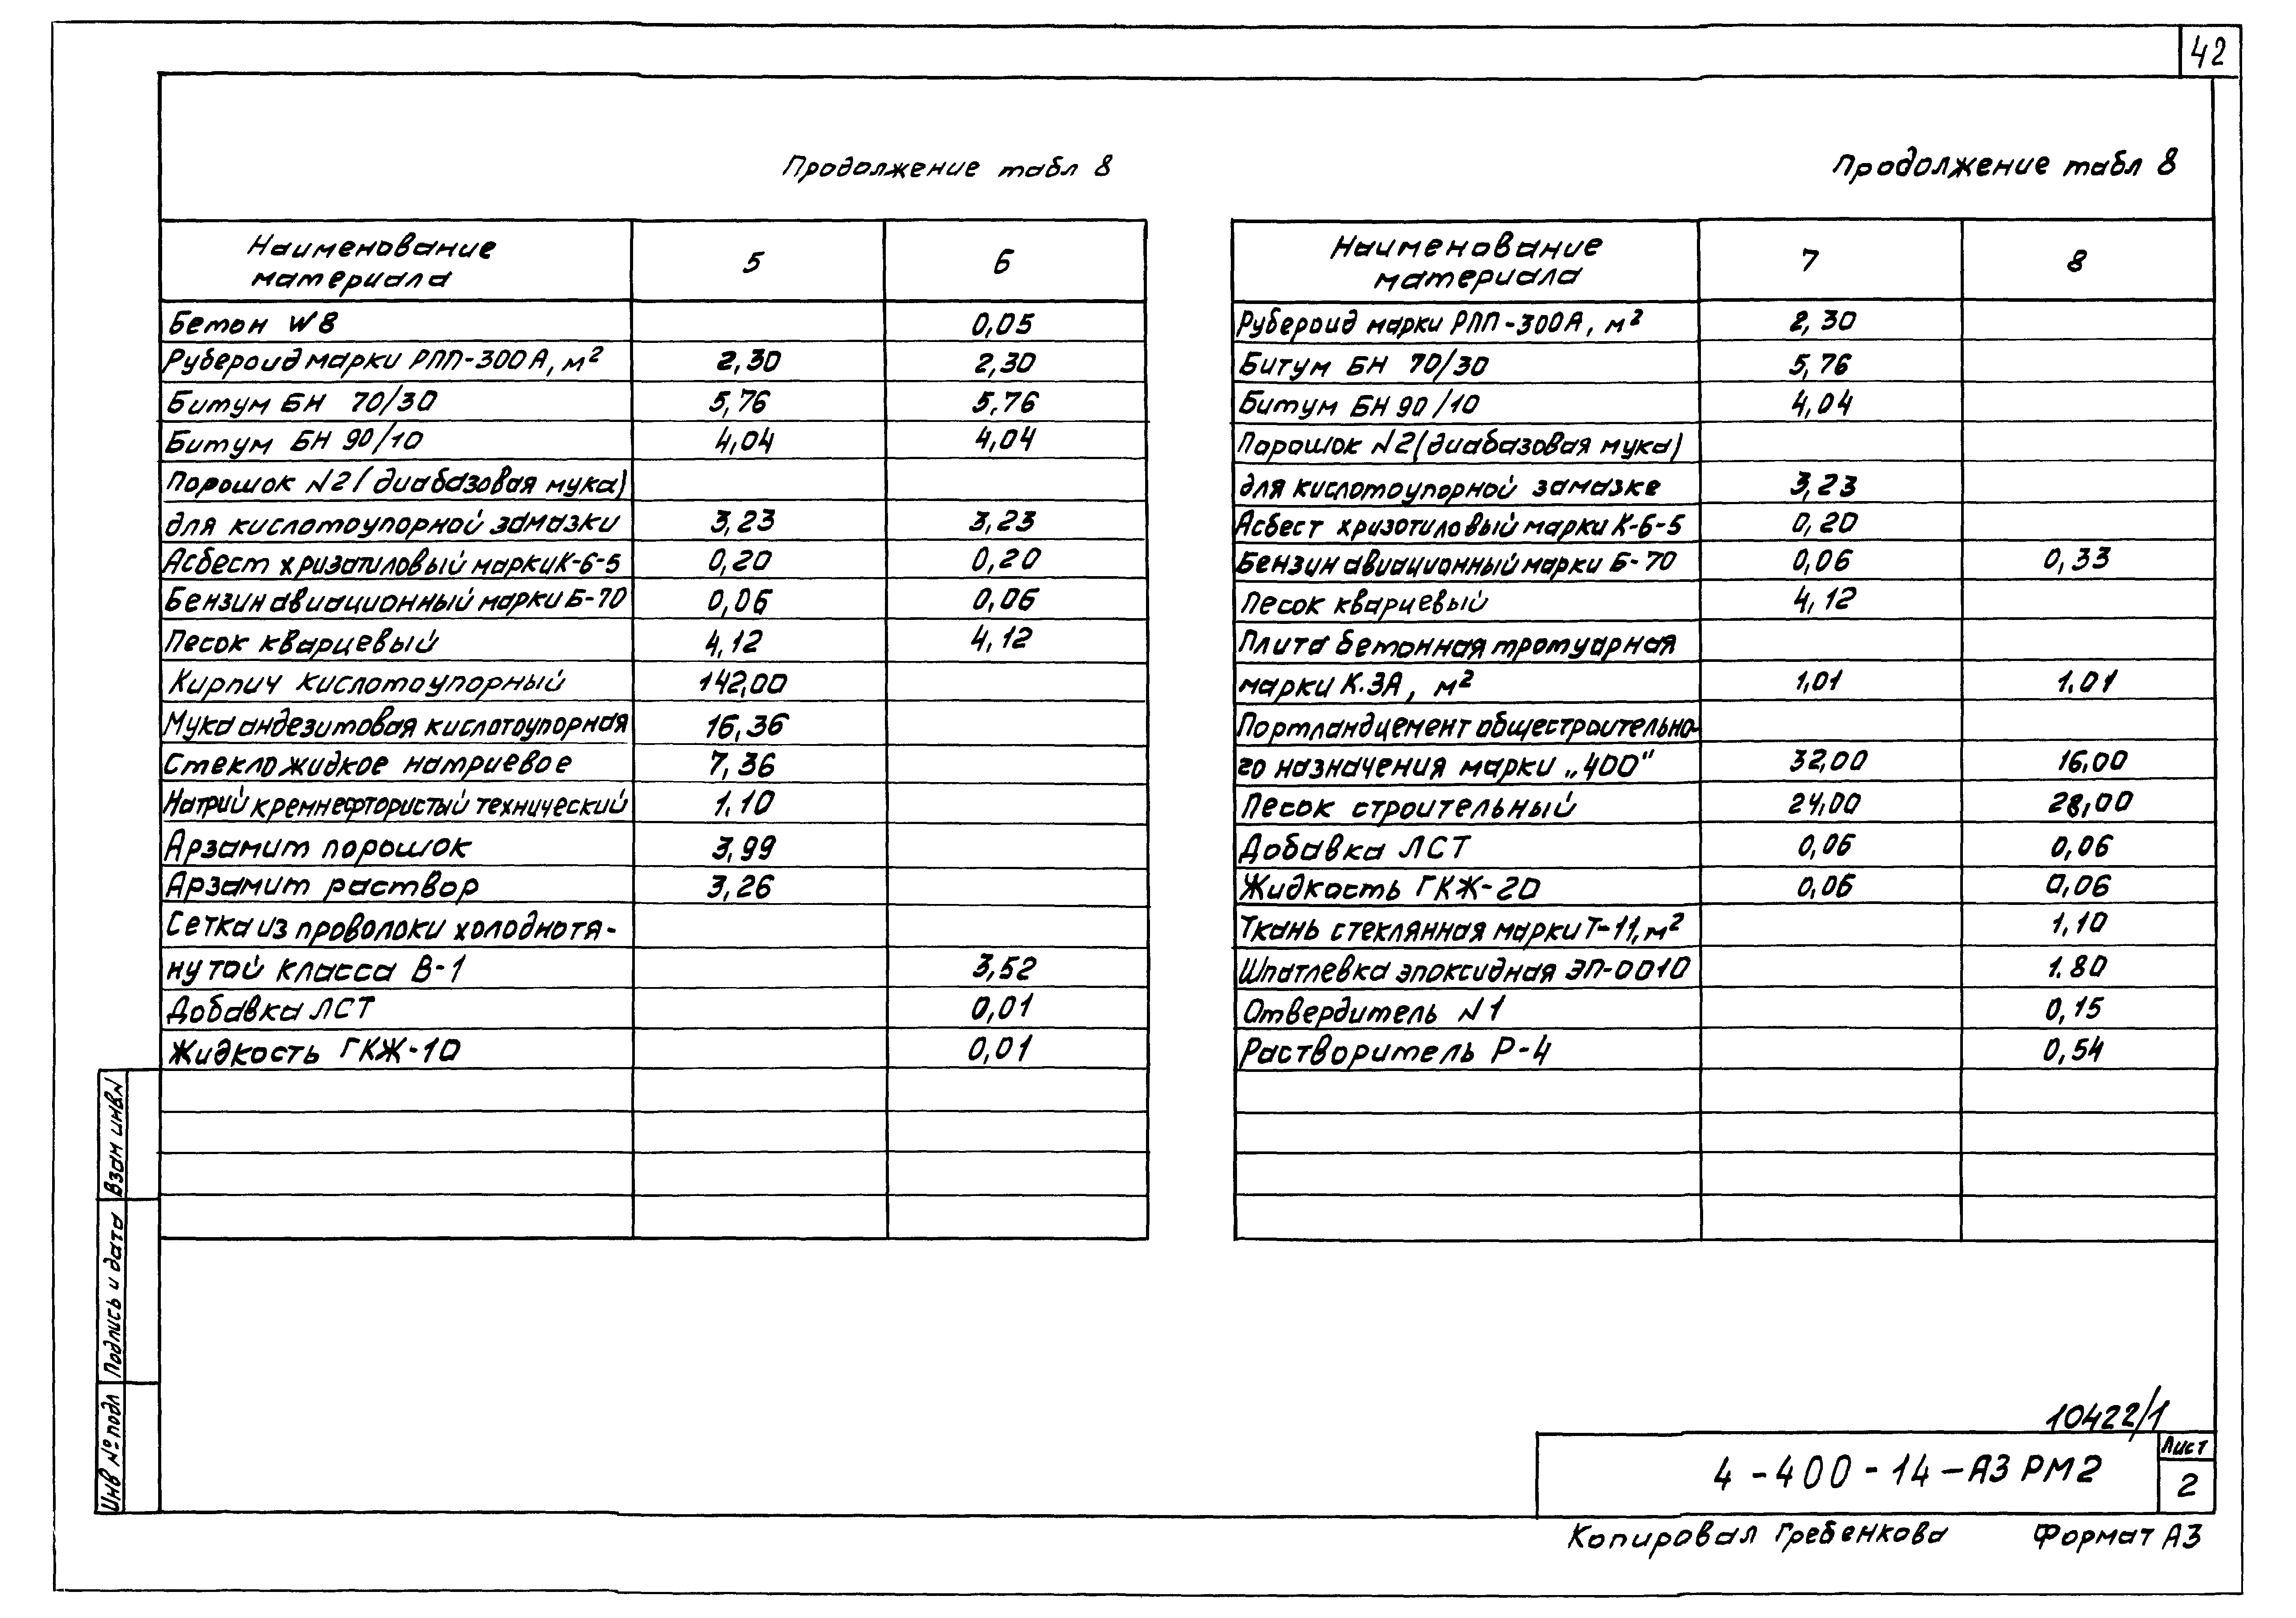 42
Продолжение табл 8
Наименование материала 5 6
Бетон W8 0,05
Рубероид марки РПП-300А, м² 2,30 2,30
Битум БН 70/30 5,76 5,76
Битум БН 90/10 4,04 4,04
Порошок N2 (диабазовая мука)
для кислотоупорной замазки 3,23 3,23
Асбест хризатиловый марки К-6-5 0,20 0,20
Бензин авиационный марки Б-70 0,06 0,06
Песок кварцевый 4,12 4,12
Кирпич кислотоупорный 142,00
Мука андезитовая кислотоупорная 16,36
Стекло жидкое натриевое 7,36
Натрий кремнефтористый технический 1.10
Арзамит порошок 3,99
Арзамит раствор 3,26
Сетка из проволоки холоднотя-
нутой класса В-1 3,52
Добавка ЛСТ 0,01
Жидкость ГКЖ-10 0,01
Продолжение табл 8
Наименование материала 7 8
Рубероид марки РПП-300А, м² 2,30
Битум БН 70/30 5,76
Битум БН 90/10 4,04
Порошок N2 (диабазовая мука)
для кислотоупорной замазке 3,23
Асбест хризотиловый марки К-6-5 0,20
Бензин авиационный марки Б-70 0,06 0,33
Песок кварцевый 4,12
Плита бетонная тротуарная
марки К.3А, м² 1,01 1.01
Портландцемент общестроительно-
го назначения марки „400" 32,00 16,00
Песок строительный 24,00 28,00
Добавка ЛСТ 0,06 0,06
Жидкость ГКЖ-20 0,06 0,06
Ткань стеклянная марки Т-11, м² 1,10
Шпатлевка эпоксидная ЭП-0010 1.80
Отвердитель N1 0,15
Растворитель Р-4 0,54
Взам инв N
Подпись и дата
Инв № подл
10422/1
4-400-14-А3 РМ2
Лист
2
Копировал Гребенкова Формат А3